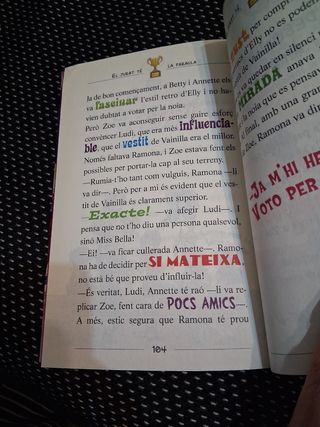 EL JURAT TÉ LA PARAULA
Ja de bon començament, a Betty i Annette els
va fascinar l'estil retro d'Elly i no ha-
vien dubtat a votar per la noia.
Però Zoe va aconseguir sense gaire esforç
convèncer Ludi, que era més influencia-
ble, que el vestit de Vainilla era el millor.
Només faltava Ramona, i Zoe estava fent els
possibles per portar-la cap al seu terreny.
—Rumia-t'ho tant com vulguis, Ramona —li
va dir—. Però per a mi és evident que el ves-
tit de Vainilla és clarament superior.
—Exacte! —va afegir Ludi—. I
pensa que no t'ho diu una persona qualsevol,
sinó Miss Bella!
—Ei! —va ficar cullerada Annette—. Ramo-
na ha de decidir per SI MATEIXA,
no està bé que proveu d'influir-la!
—És veritat, Ludi, Annette té raó —li va re-
plicar Zoe, fent cara de POCS AMICS—.
A més, estic segura que Ramona té prou
184
per comp
d'Elly no es poden
de Vainilla!
va quedar en silenci
anava
la noia es pensava
al final, amb una gran
Zoe, Ramona va di
JA M'HI HE
VOTO PER